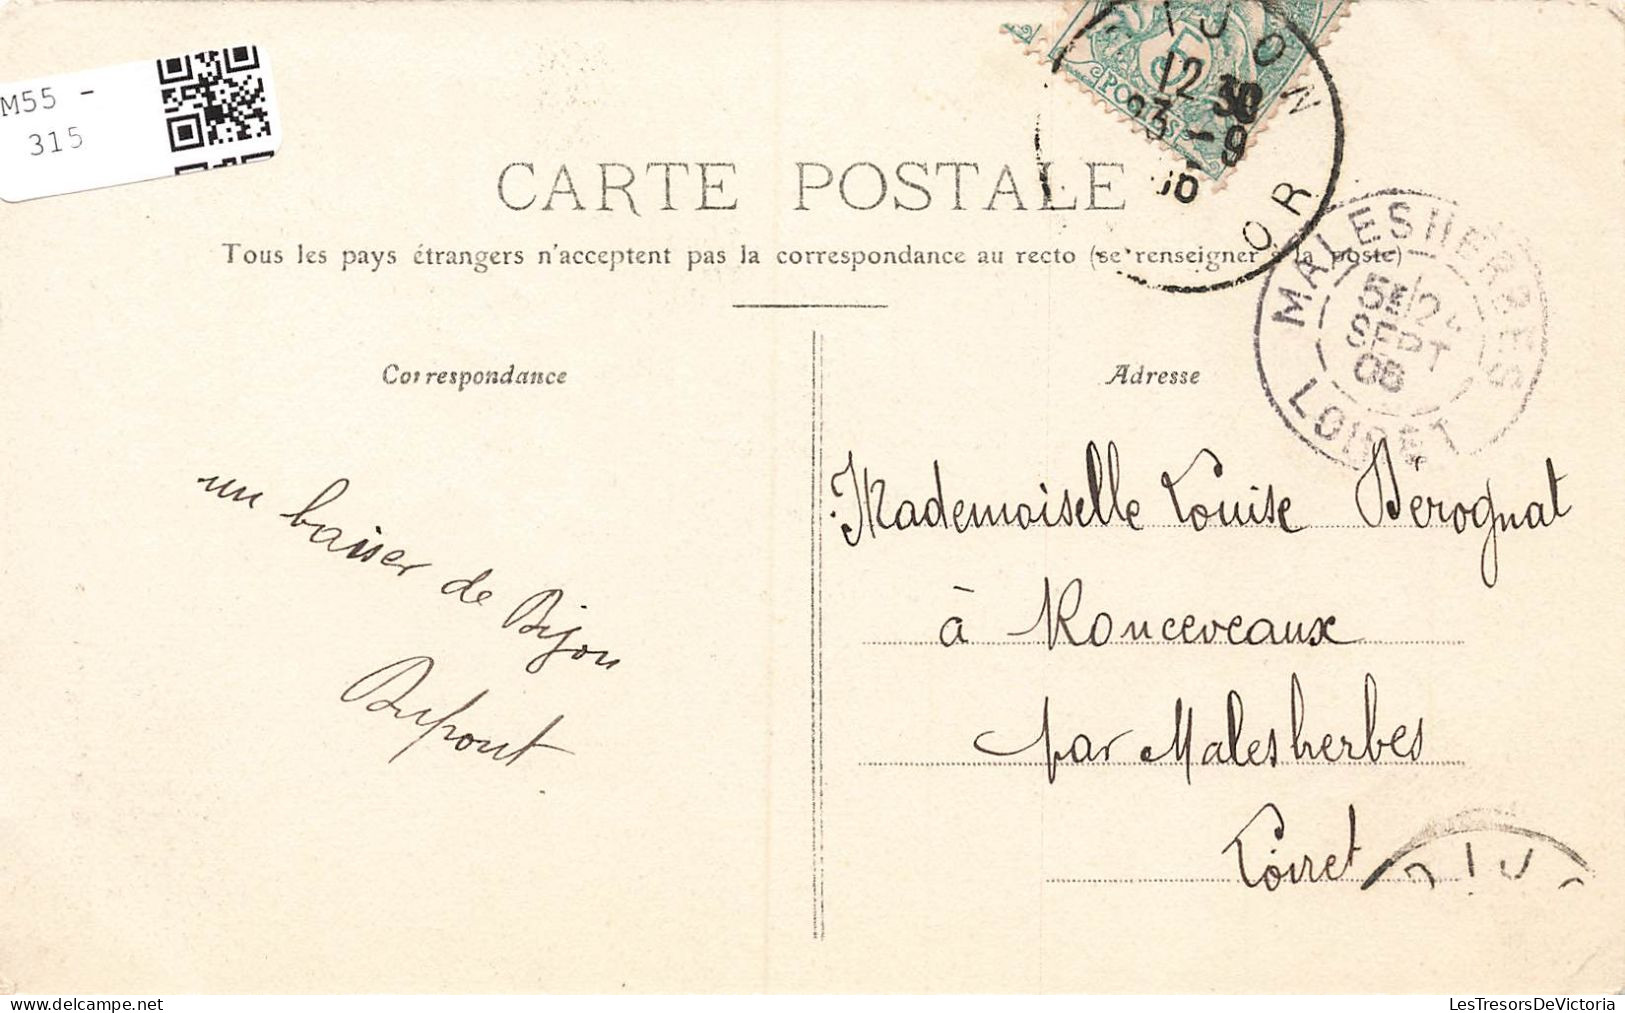 M55 -
315
5
POSTES
IJON
12 30
23 - 9
06
OR
CARTE POSTALE
Tous les pays étrangers n'acceptent pas la correspondance au recto (se renseigner à la poste)
MALESHERBES
SEPT
06
LOIRET
Correspondance
Adresse
un baiser de Dijon
Dupont
Mademoiselle Louise Bérognat
à Ronceveaux
par Malesherbes
Loiret
DIJO
LesTresorsDeVictoria.com
LesTresorsDeVictoria